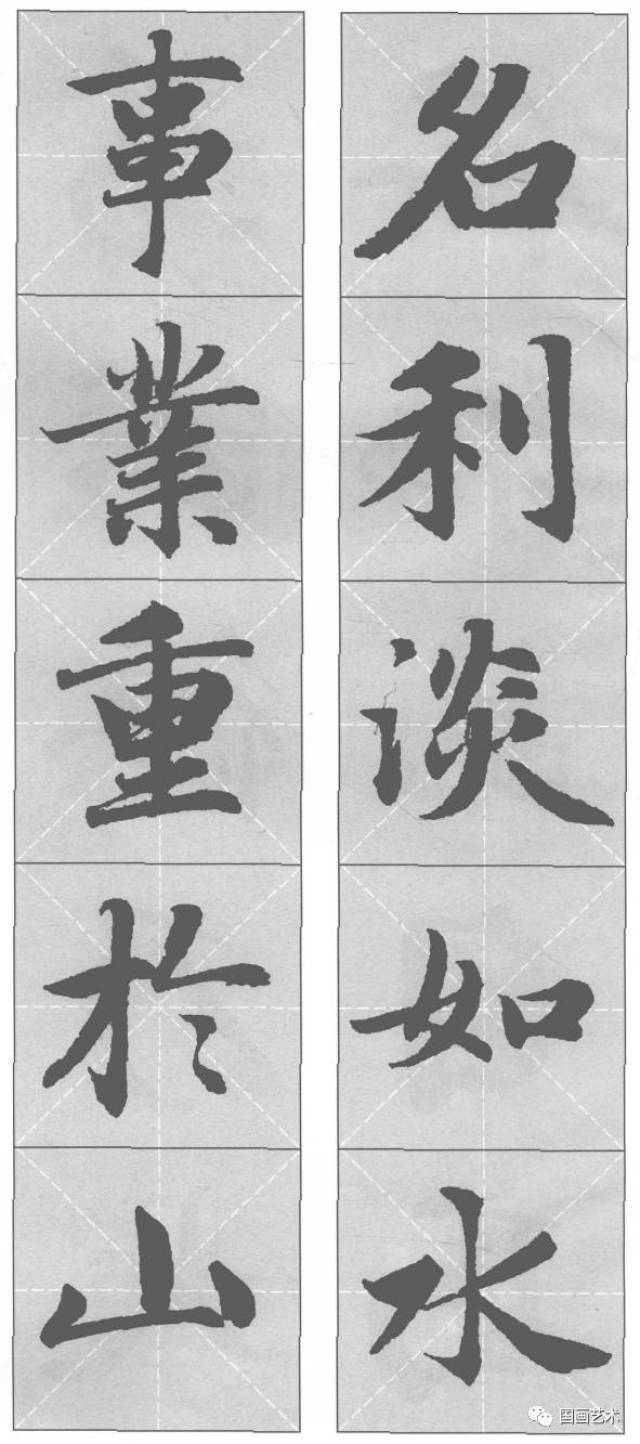 名利淡如水
事業重於山
国画艺术